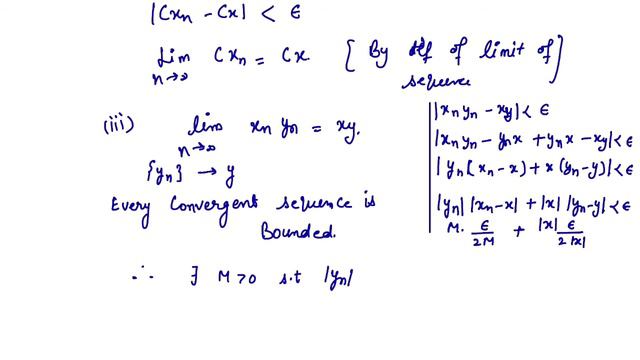 |Cxn - Cx| < ε
Lim Cxn = Cx [By def of limit of
n→∞ sequence]
(iii) lim xn yn = xy.
n→∞
{yn} → y
Every Convergent sequence is
Bounded.
∴ ∃ M>0 s.t |yn|
|xn yn - xy| < ε
|xn yn - yn x + yn x - xy| < ε
|yn(xn - x) + x(yn - y)| < ε
|yn| |xn - x| + |x| |yn - y| < ε
M. ε/2M + |x| ε/2|x|